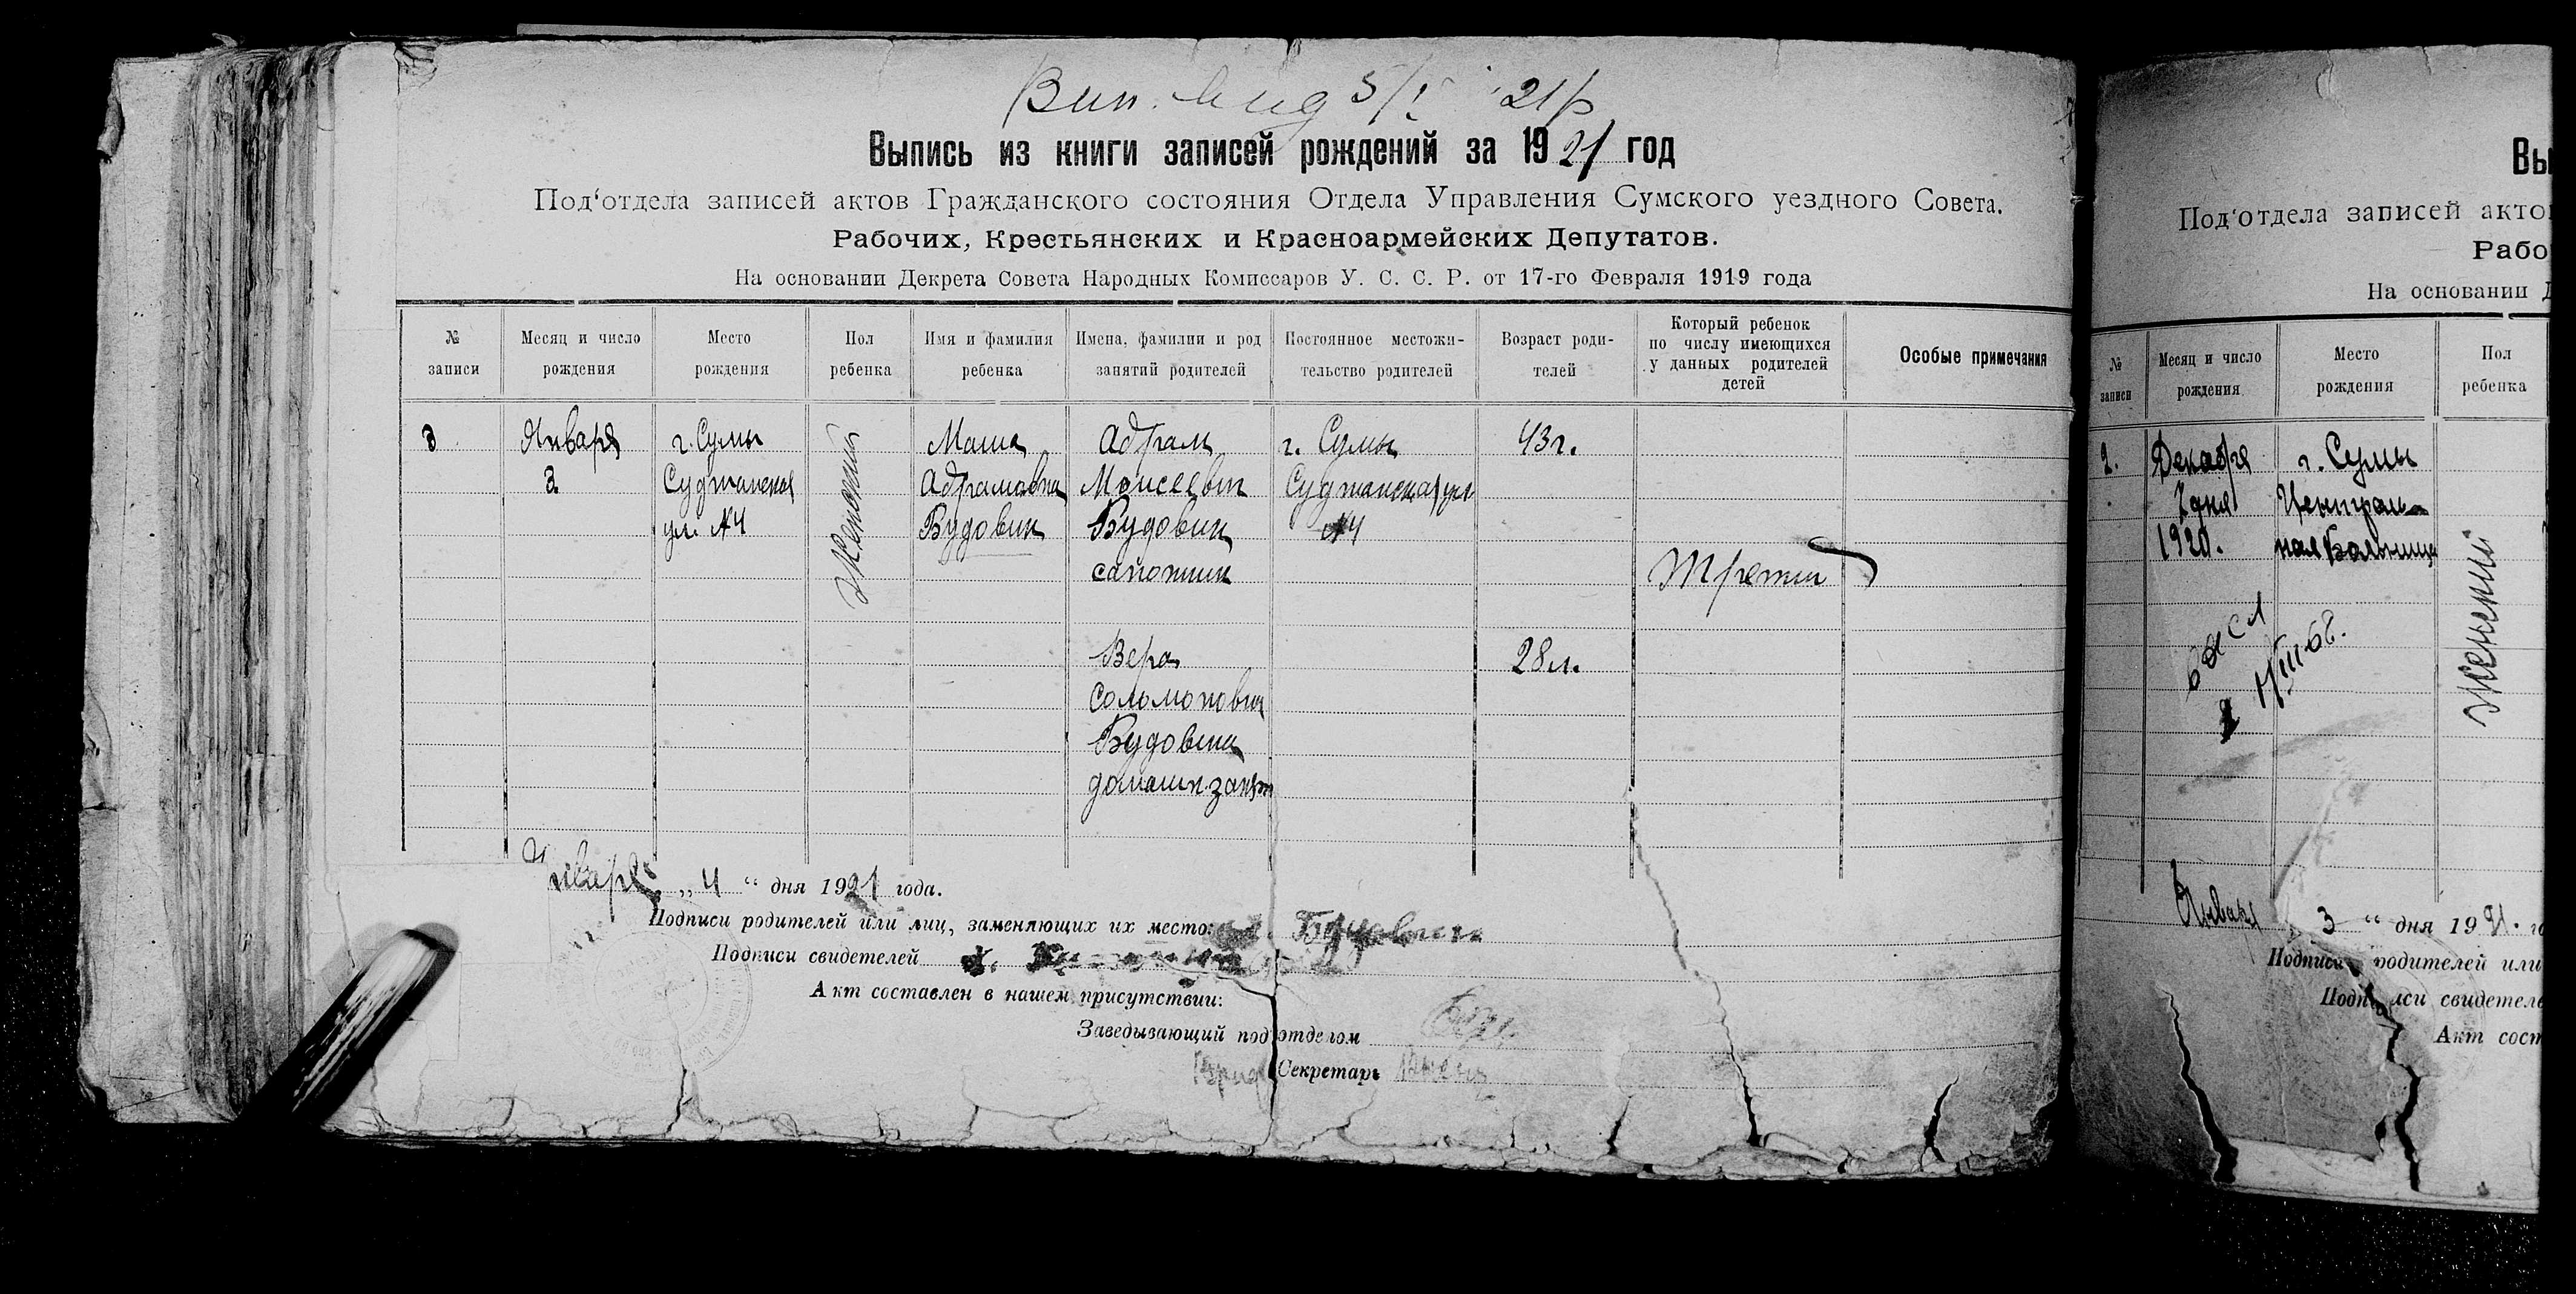 Вип. вид 5/I 21 р
Выпись из книги записей рождений за 1921 год
Под‘отдела записей актов Гражданского состояния Отдела Управления Сумского уездного Совета.
Рабочих, Крестьянских и Красноармейских Депутатов.
На основании Декрета Совета Народных Комиссаров У. С. С. Р. от 17-го Февраля 1919 года
№ записи
Месяц и число рождения
Место рождения
Пол ребенка
Имя и фамилия ребенка
Имена, фамилии и род занятий родителей
Постоянное местожи-
тельство родителей
Возраст роди-
телей
Который ребенок
по числу имеющихся
у данных родителей
детей
Особые примечания
3
Января
3
г. Сумы
Суджанская
ул. №4
Женский
Маша
Абрамовна
Будовик
Абрам
Моисеевич
Будовик
сапожник
г. Сумы
Суджанская ул
№4
43 г.
Третий
Вера
Соломоновна
Будовина
домашн. занят
28 л.
Января „ 4 “ дня 1921 года.
Подписи родителей или лиц, заменяющих их место:
Подписи свидетелей
Акт составлен в нашем присутствии:
Заведывающий под‘отделом
Секретарь
Вы
Под‘отдела записей акто
Рабо
На основании Д
№ записи
Месяц и число рождения
Место рождения
Пол ребенка
2.
Декабря
7 дня
1920.
г. Сумы
Централь-
ная Больница
Женский
Января 3 “ дня 1921. го
Подписи родителей или
Подписи свидетеле
Акт сост